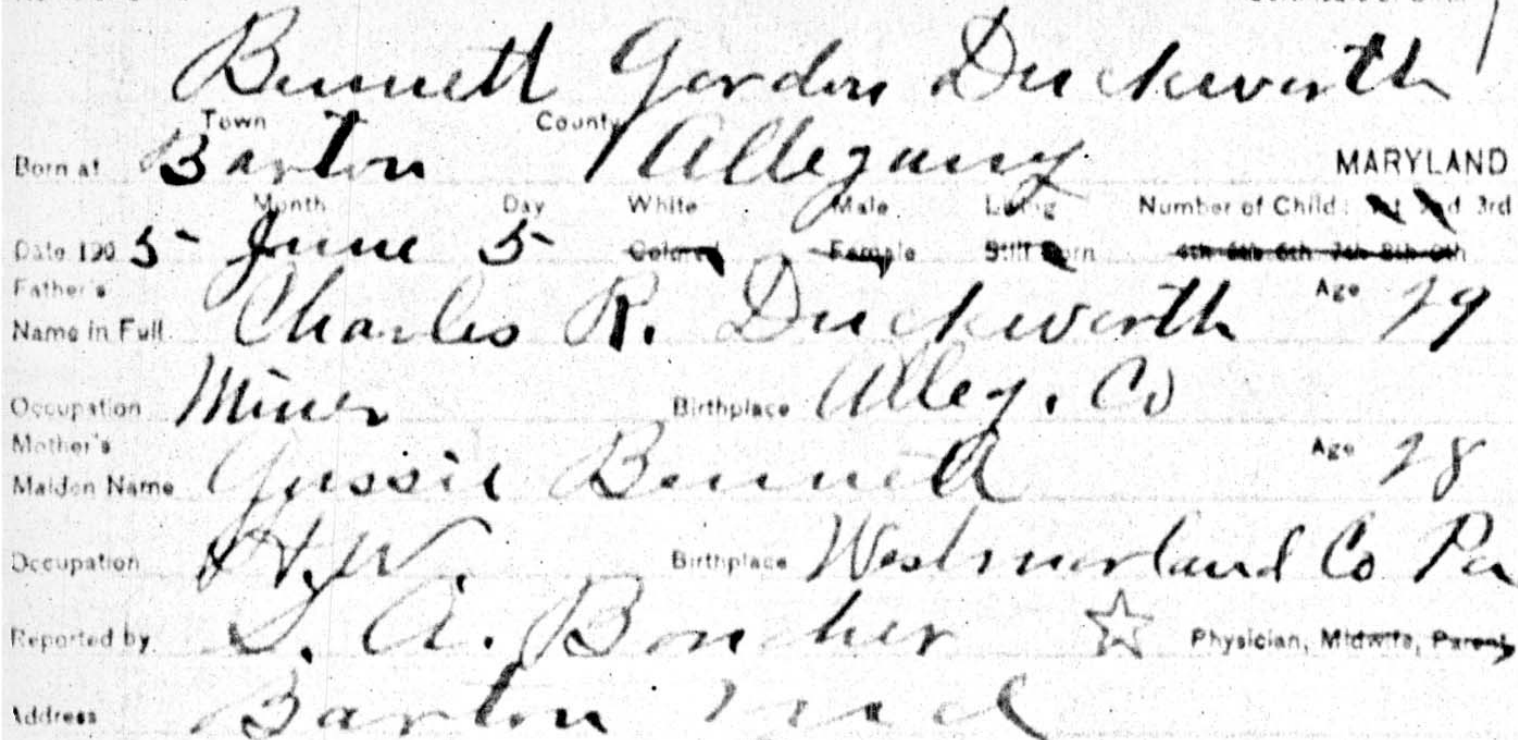 Bennett Gordon Duckworth
Town County
Born at Barton Allegany MARYLAND
Month Day White Male Living Number of Child: 1st 2nd 3rd
Date 190 5 June 5 Colored Female Still Born 4th 5th 6th 7th 8th 9th
Father's Age 29
Name in Full Charles R. Duckworth
Occupation Miner Birthplace Alleg. Co
Mother's Age 28
Maiden Name Gussie Bennett
Occupation H.W. Birthplace Westmorland Co Pa
Reported by S. A. Boucher Physician, Midwife, Parent
Address Barton Md